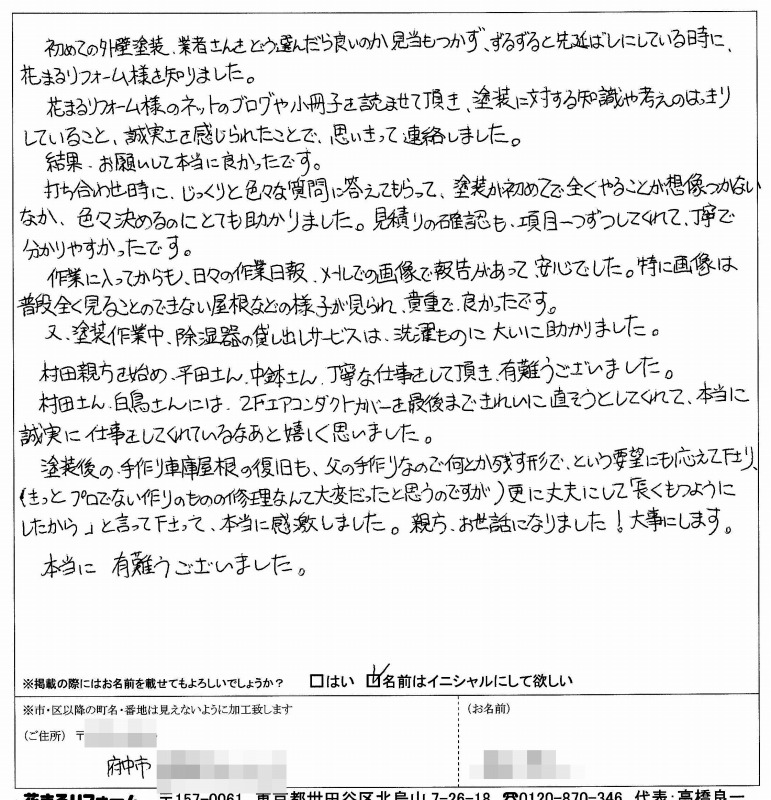 初めての外壁塗装、業者さんをどう選んだら良いのか見当もつかず、ずるずると先延ばしにしている時に、
花まるリフォーム様を知りました。
花まるリフォーム様のネットのブログや小冊子を読ませて頂き、塗装に対する知識や考えのはっきり
していること、誠実さを感じられたことで、思いきって連絡しました。
結果、お願いして本当に良かったです。
打ち合わせ時に、じっくりと色々な質問に答えてもらって、塗装が初めてで全くやることが想像つかない
なか、色々決めるのにとても助かりました。見積りの確認も、項目一つずつしてくれて、丁寧で
分かりやすかったです。
作業に入ってからも、日々の作業日報、メールでの画像で報告があって安心でした。特に画像は
普段全く見ることのできない屋根などの様子が見られ、貴重で良かったです。
又、塗装作業中、除湿器の貸し出しサービスは、洗濯ものに大いに助かりました。
村田親方を始め、平田さん、中鉢さん、丁寧な仕事をして頂き、有難うございました。
村田さん、白鳥さんには、2Fエアコンダクトカバーを最後まできれいに直そうとしてくれて、本当に
誠実に仕事をしてくれているなあと嬉しく思いました。
塗装後の、手作り車庫屋根の復旧も、父の手作りなので何とか残す形で、という要望にも応えて下さり、
(きっとプロでない作りのものの修理なんて大変だったと思うのですが)更に丈夫にして「長くもつように
したから」と言って下さって、本当に感激しました。親方、お世話になりました!大事にします。
本当に 有難うございました。
※掲載の際にはお名前を載せてもよろしいでしょうか? □はい ☑名前はイニシャルにして欲しい
※市・区以降の町名・番地は見えないように加工致します (お名前)
(ご住所) 〒
府中市
花まるリフォーム 〒157-0061 東京都世田谷区北烏山7-26-18 ☎0120-870-346 代表:高橋良一